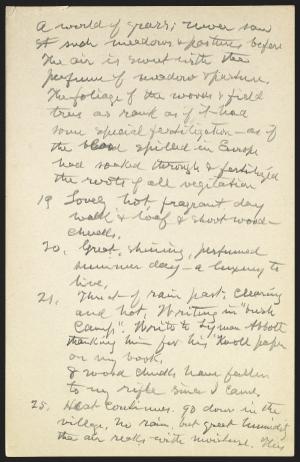 A world of grass; never saw
such meadows & pastures before
The air is sweet with the
perfume of meadow & pasture.
The foliage of the woods & field
trees as rank as if it had
some special fertilization - as if
the blood spilled in Europe
had soaked through & fertilized
the roots of all vegetation
19 Lovely hot, fragrant day
walk & loaf & shoot wood-
chucks.
20. Great, shining, perfumed
summer day - a luxury to
live.
21. Threat of rain past; clearing
and hot. Writing in "bush
Camp". Write to Lyman Abbott
thanking him for his paper
on my book.
8 wood chucks have fallen
to my rifle since I came.
25. Heat continues. go down in the
village, no rain, but great humidity
the air reeks with moisture. This